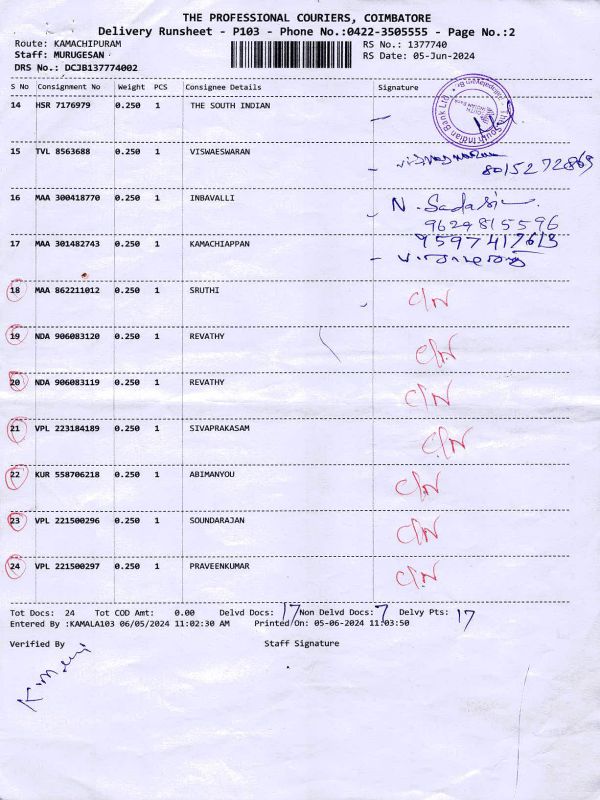 THE PROFESSIONAL COURIERS, COIMBATORE
Delivery Runsheet - P103 - Phone No.:0422-3505555 - Page No.:2
Route: KAMACHIPURAM RS No.: 1377740
Staff: MURUGESAN RS Date: 05-Jun-2024
DRS No.: DCJB137774002
S No Consignment No Weight PCS Consignee Details Signature
14 HSR 7176979 0.250 1 THE SOUTH INDIAN
The South Indian Bank Ltd.
15 TVL 8563688 0.250 1 VISWAESWARAN
8015272869
16 MAA 300418770 0.250 1 INBAVALLI N. Sadasiv
9624815596
17 MAA 301482743 0.250 1 KAMACHIAPPAN 9597417613
18 MAA 862211012 0.250 1 SRUTHI C/N
19 NDA 906083120 0.250 1 REVATHY C/N
20 NDA 906083119 0.250 1 REVATHY C/N
21 VPL 223184189 0.250 1 SIVAPRAKASAM C/N
22 KUR 558706218 0.250 1 ABIMANYOU C/N
23 VPL 221500296 0.250 1 SOUNDARAJAN C/N
24 VPL 221500297 0.250 1 PRAVEENKUMAR C/N
Tot Docs: 24 Tot COD Amt: 0.00 Delvd Docs: 17 Non Delvd Docs: 7 Delvy Pts: 17
Entered By :KAMALA103 06/05/2024 11:02:30 AM Printed On: 05-06-2024 11:03:50
Verified By Staff Signature